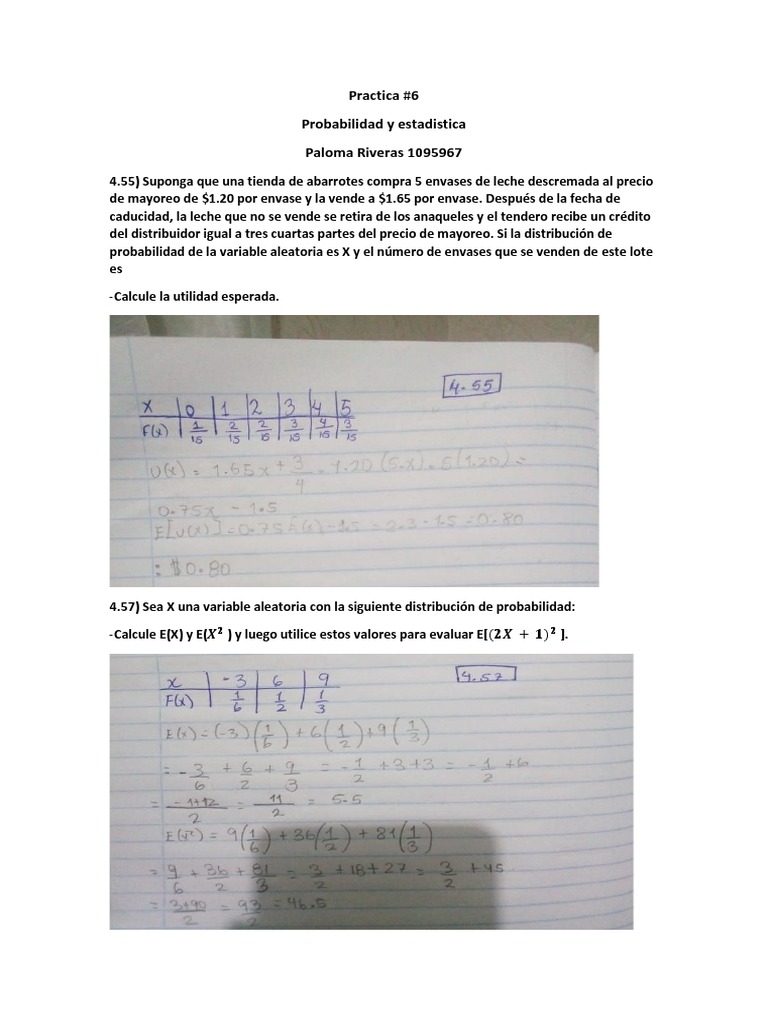 Practica #6
Probabilidad y estadistica
Paloma Riveras 1095967
4.55) Suponga que una tienda de abarrotes compra 5 envases de leche descremada al precio
de mayoreo de $1.20 por envase y la vende a $1.65 por envase. Después de la fecha de
caducidad, la leche que no se vende se retira de los anaqueles y el tendero recibe un crédito
del distribuidor igual a tres cuartas partes del precio de mayoreo. Si la distribución de
probabilidad de la variable aleatoria es X y el número de envases que se venden de este lote
es
-Calcule la utilidad esperada.
4.55
X | 0 | 1 | 2 | 3 | 4 | 5
F(x) | 1/15 | 2/15 | 2/15 | 3/15 | 4/15 | 3/15
U(x) = 1.65x + 3/4 . 1.20 (5-x) - 5(1.20) =
0.75x - 1.5
E[U(x)] = 0.75 E(x) - 1.5 = 2.3 - 1.5 = 0.80
: $0.80
4.57) Sea X una variable aleatoria con la siguiente distribución de probabilidad:
-Calcule E(X) y E(X²) y luego utilice estos valores para evaluar E[(2X + 1)²].
4.57
x | -3 | 6 | 9
F(x) | 1/6 | 1/2 | 1/3
E(x) = (-3)(1/6) + 6(1/2) + 9(1/3)
= -3/6 + 6/2 + 9/3 = -1/2 + 3 + 3 = -1/2 + 6
= -1+12/2 = 11/2 = 5.5
E(x²) = 9(1/6) + 36(1/2) + 81(1/3)
= 9/6 + 36/2 + 81/3 = 3/2 + 18 + 27 = 3/2 + 45
= 3+90/2 = 93/2 = 46.5